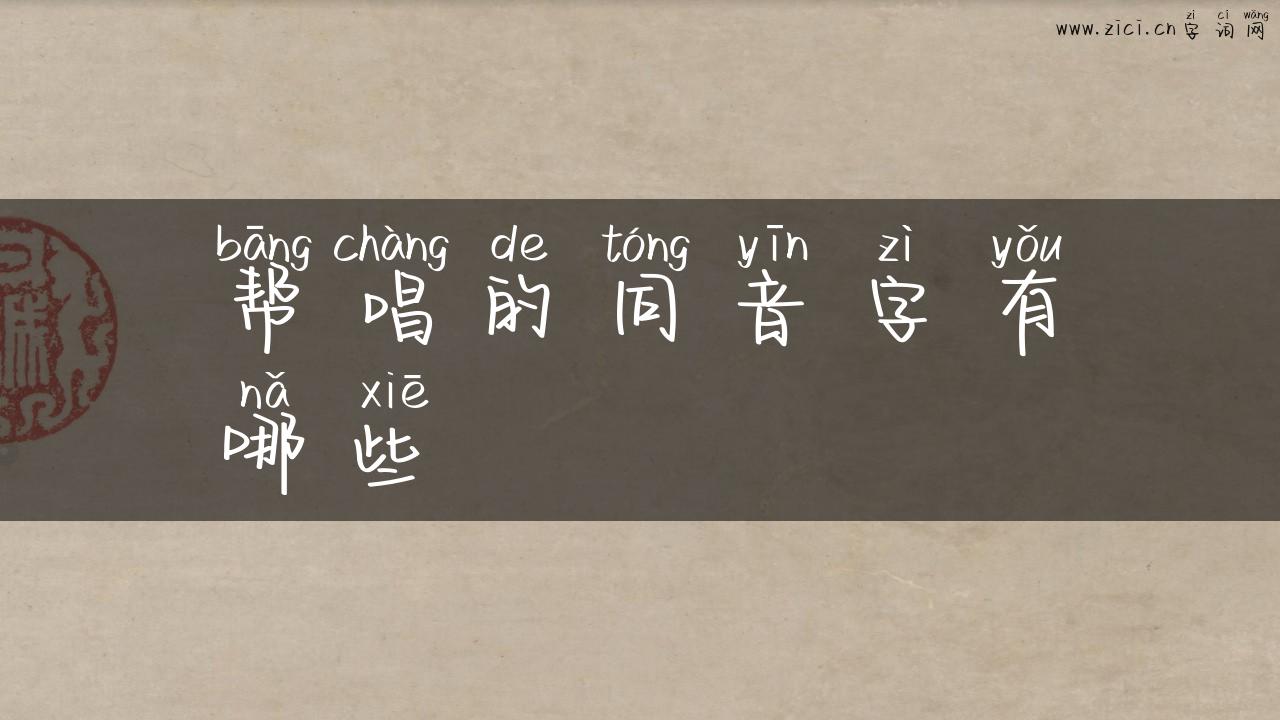 zì cí wǎng
www.zici.cn字词网
bāng chàng de tóng yīn zì yǒu
帮唱的同音字有
nǎ xiē
哪些